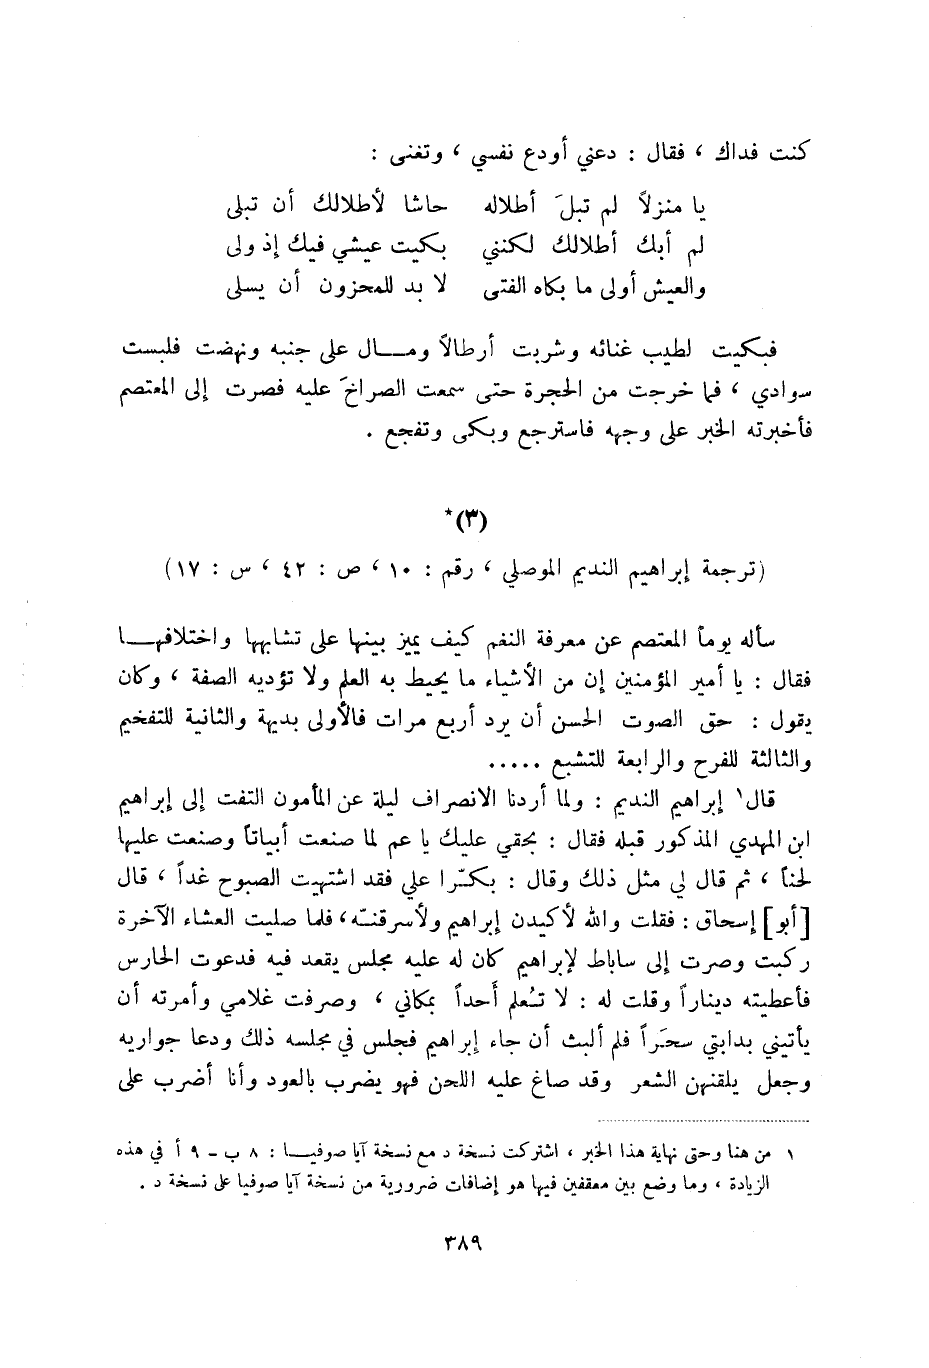 كنت فداك ، فقال : دعني أودع نفسي ، وتغنى :
يا منزلاً لم تبلَ أطلاله حاشا لأطلالك أن تبلى
لم أبك أطلالك لكنني بكيت عيشي فيك إذ ولى
والعيش أولى ما بكاه الفتى لا بد للمحزون أن يسلى
فبكيت لطيب غنائه وشربت أرطالاً ومــال على جنبه ونهضت فلبست
سوادي ، فما خرجت من الحجرة حتى سمعت الصراخَ عليه فصرت إلى المعتصم
فأخبرته الخبر على وجهه فاسترجع وبكى وتفجع .
(٣)*
(ترجمة إبراهيم النديم الموصلي ، رقم : ١٠ ، ص : ٤٢ ، س : ١٧)
سأله يوماً المعتصم عن معرفة النغم كيف يميز بينها على تشابهها واختلافهــا
فقال : يا أمير المؤمنين إن من الأشياء ما يحيط به العلم ولا تؤديه الصفة ، وكان
يقول : حق الصوت الحسن أن يرد أربع مرات فالأولى بديهة والثانية للتفخيم
والثالثة للفرح والرابعة للتشبع .....
قال١ إبراهيم النديم : ولما أردنا الانصراف ليلة عن المأمون التفت إلى إبراهيم
ابن المهدي المذكور قبله فقال : بحقي عليك يا عم لما صنعت أبياتاً وصنعت عليها
لحناً ، ثم قال لي مثل ذلك وقال : بكّرا علي فقد اشتهيت الصبوح غداً ، قال
[أبو] إسحاق : فقلت والله لأكيدن إبراهيم ولأسرقنّه ، فلما صليت العشاء الآخرة
ركبت وصرت إلى ساباط لإبراهيم كان له عليه مجلس يقعد فيه فدعوت الحارس
فأعطيته ديناراً وقلت له : لا تُعلم أحداً بمكاني ، وصرفت غلامي وأمرته أن
يأتيني بدابتي سحَراً فلم ألبث أن جاء إبراهيم فجلس في مجلسه ذلك ودعا جواريه
وجعل يلقنهن الشعر وقد صاغ عليه اللحن فهو يضرب بالعود وأنا أضرب على
١ من هنا وحتى نهاية هذا الخبر ، اشتركت نسخة د مع نسخة آيا صوفيــا : ٨ ب - ٩ أ في هذه
الزيادة ، وما وضع بين معقفين فيها هو إضافات ضرورية من نسخة آيا صوفيا على نسخة د .
٣٨٩